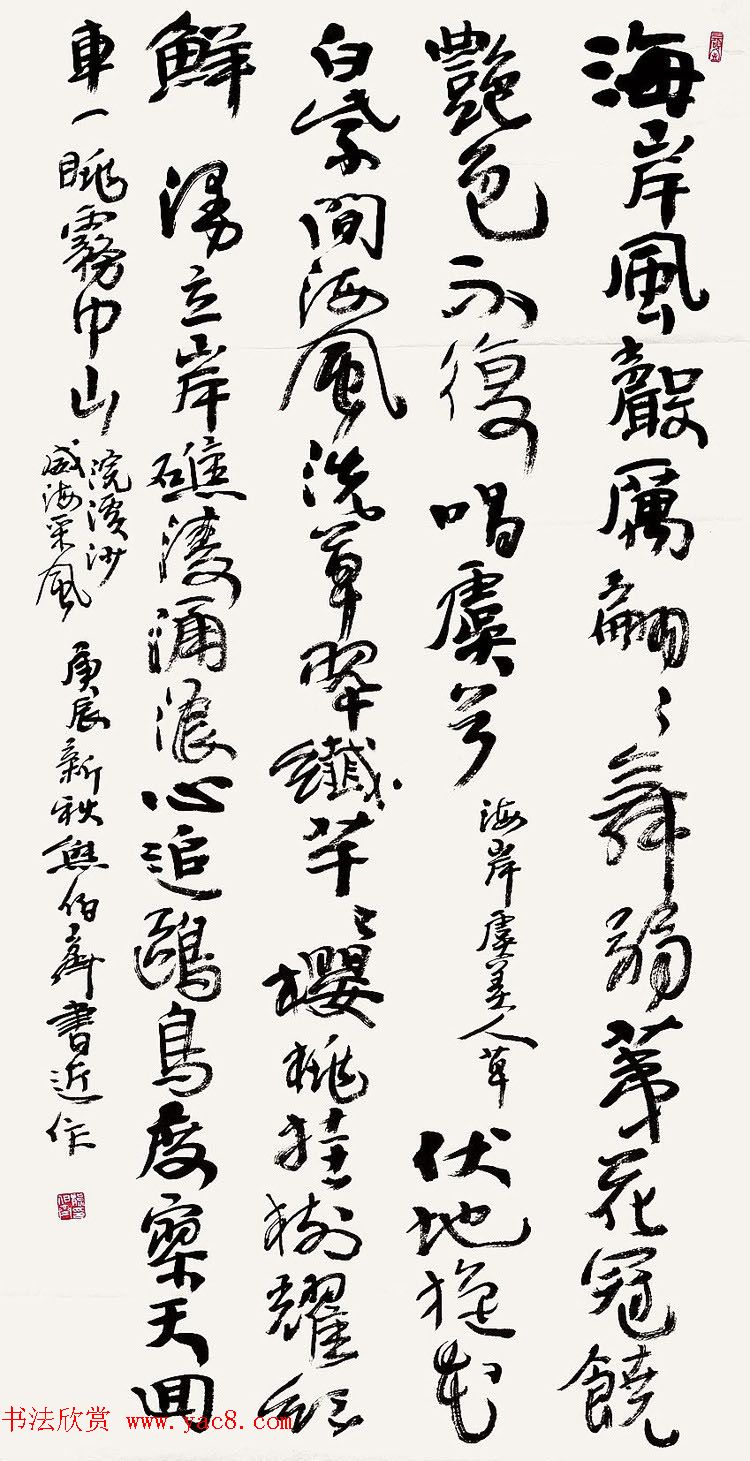 海岸風嚴厲翩〻舞弱荑花冠饒
艷色不復唱虞兮 海岸虞美人草 伏地旋花
白紫間海風洗草翠纖芊〻櫻桃挂樹耀紅
鮮 立岸礁淩涌浪心追鷗鳥度寥天回
車一眺霧中山
浣溪沙
威海采風
庚辰新秋熊伯齊書近作
书法欣赏 www.yac8.com